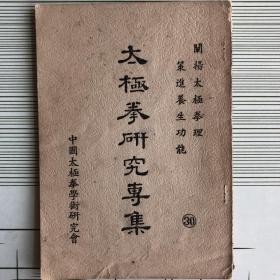 闡揚太極拳理
策進養生功能
太極拳研究專集
㉚
中國太極拳學術研究會